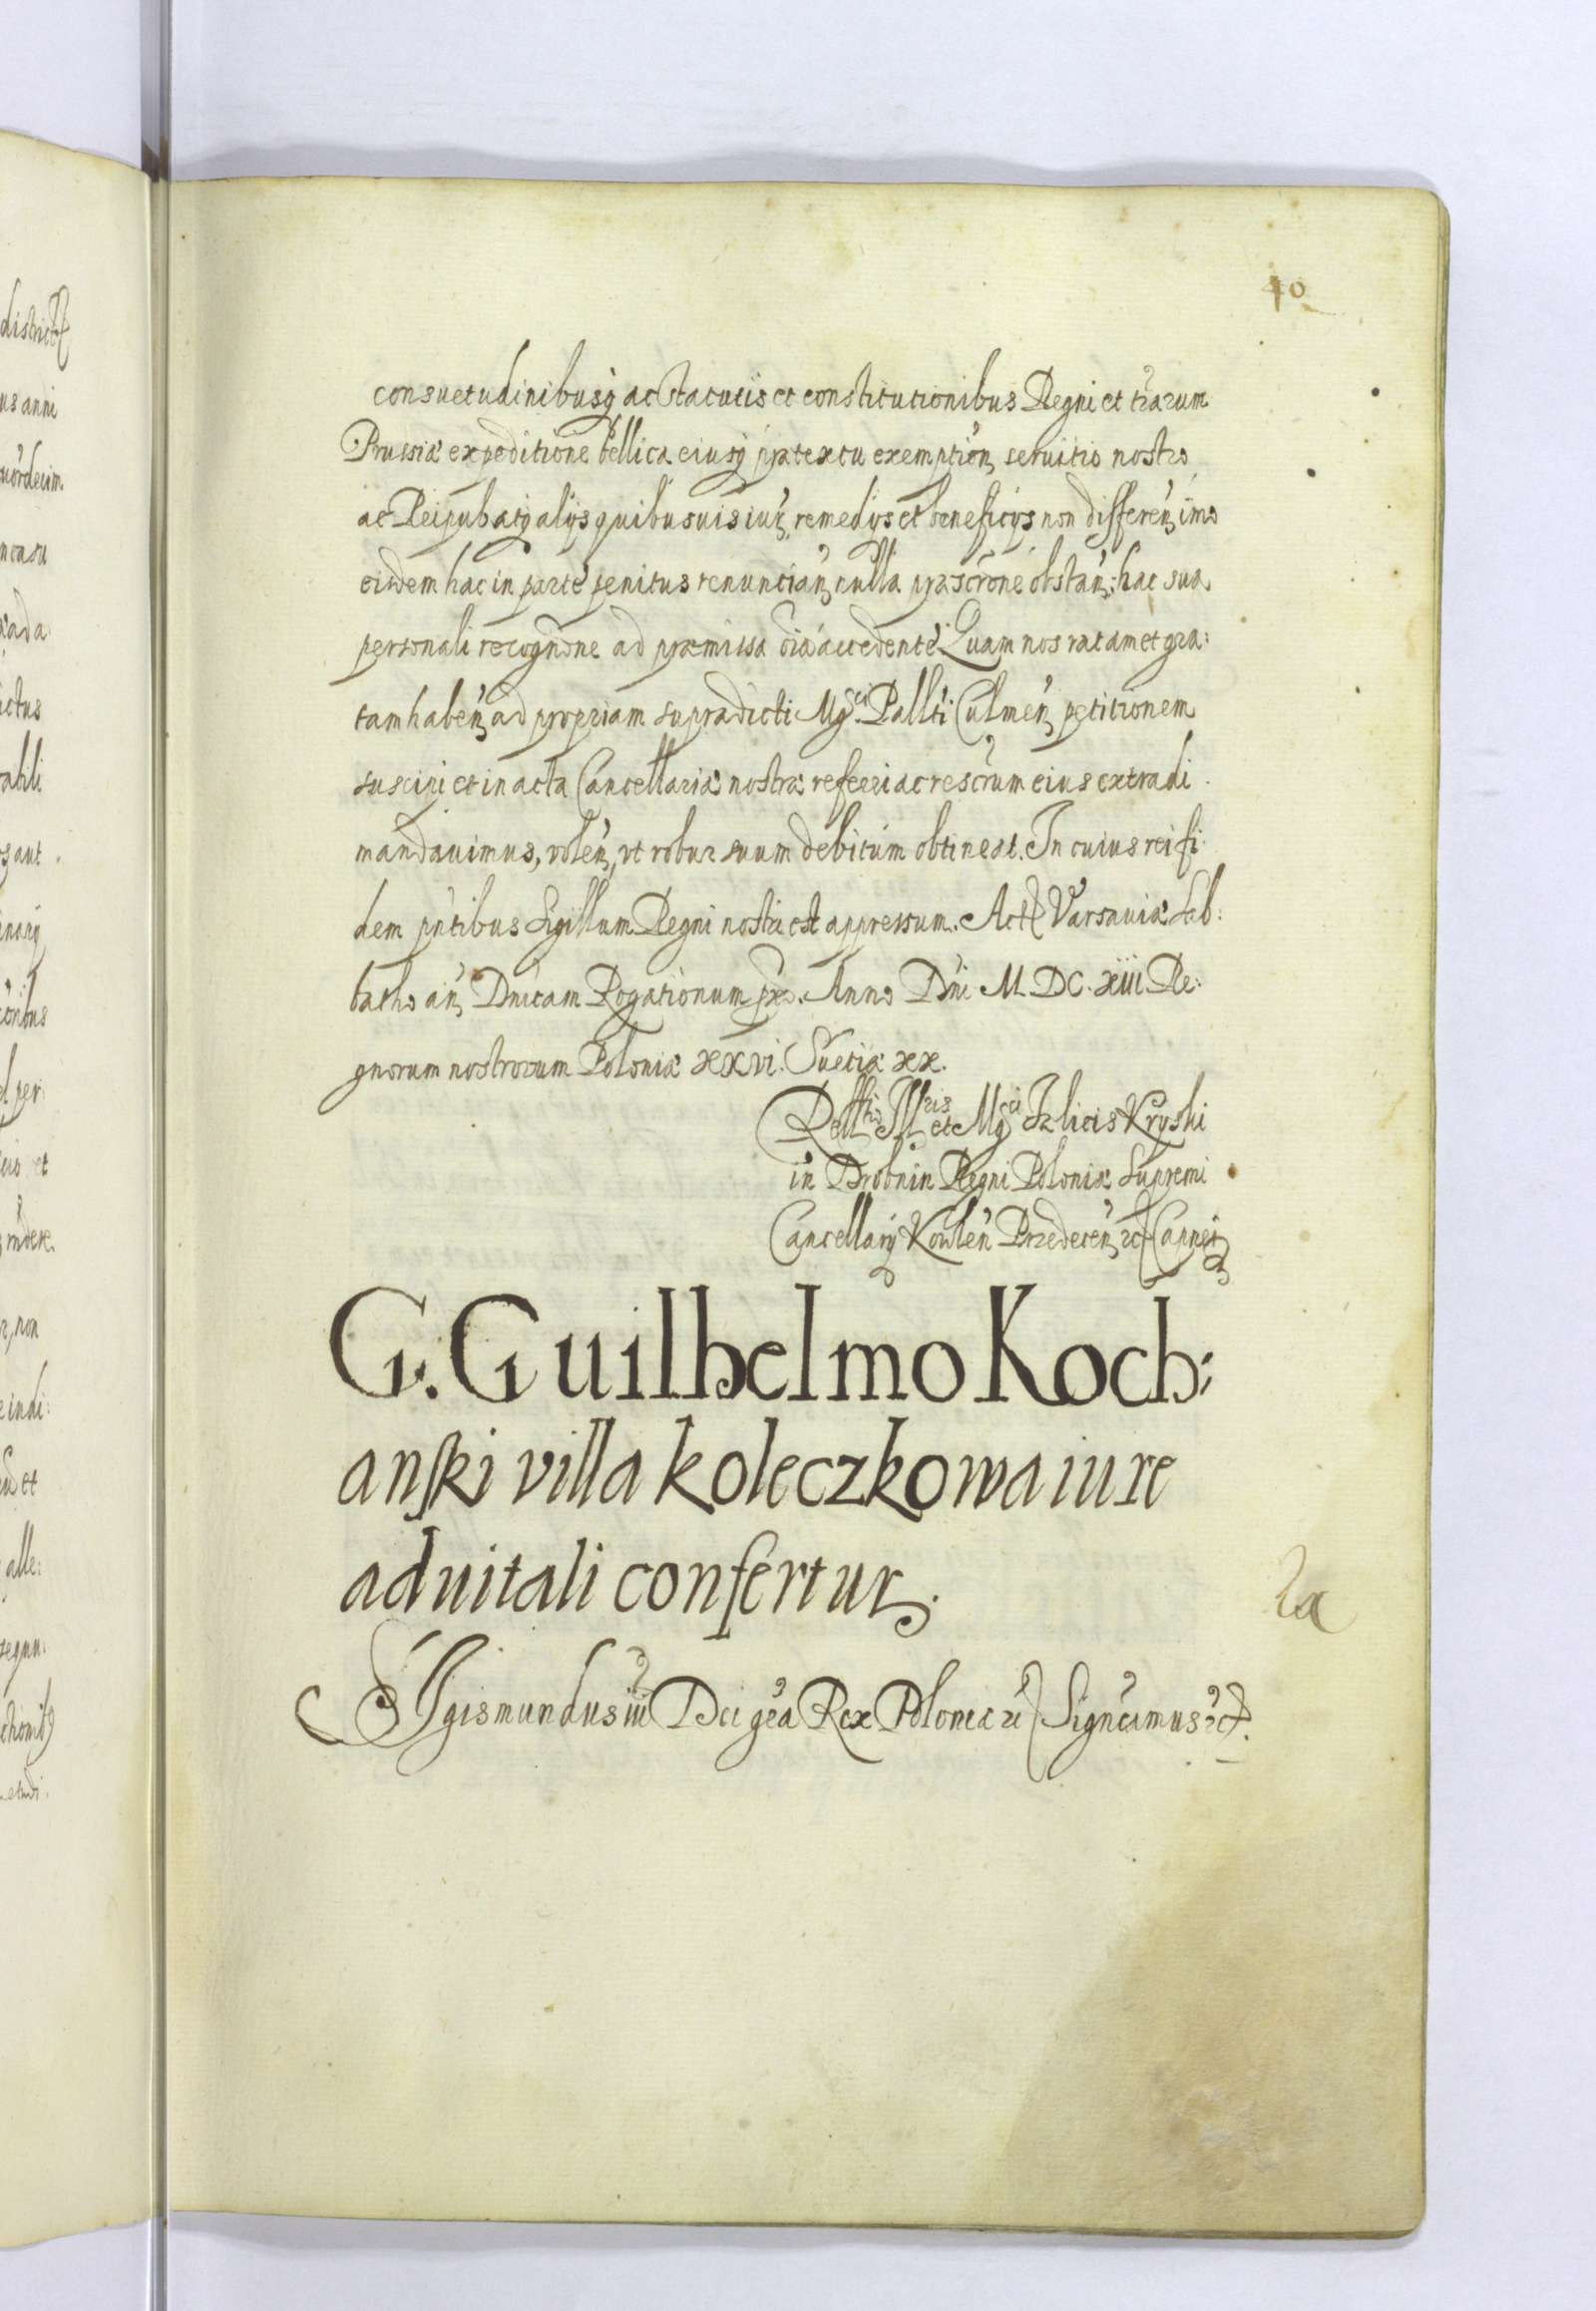 40
consuetudinibusq́ ac Statutis et constitutionibus Regni et tr̃arum
Prussiæ expeditione bellica eiusq́ prætextu exemption̄, seruitio nostro
ac Reipub atq́ alijs quibusuis iur̃, remedijs et beneficijs non differen̄, imo
eisdem hac in parte penitus renuncian̄, nulla præscr̃one obstan̄: hac sua
personali recogn̄one ad præmissa oia accedente. Quam nos ratam et gra:
tam haben̄, ad propriam supradicti Mg̃ci Pall̃ti Culmen̄, petitionem
suscipi et in acta Cancellariæ nostræ referri ac rescr̃um eius extradi
mandauimus, volen̄, vt robur suum debitum obtineat. In cuius rei fi:
dem p̃ntibus Sigillum Regni nostri est appressum. Act Varsauiæ Sab:
batho an̄, Dn̄icam Rogationum pxo. Anno Dn̄i M. DC. xiii Re:
gnorum nostrorum Poloniæ xxvi. Suetiæ xx.
Rell̃tio Ill̃ris et Mg̃ci Fælicis Kryski
in Drobnin Regni Poloniæ Supremi
Cancellarij Kowlen̄ Przedecen̄, etc Capnei
G. Guilhelmo Koch:
anski villa Koleczkowa iure
aduitali confertur.
Sigismundus iii Dei gr̃a Rex Poloniæ etc Significamus etc.